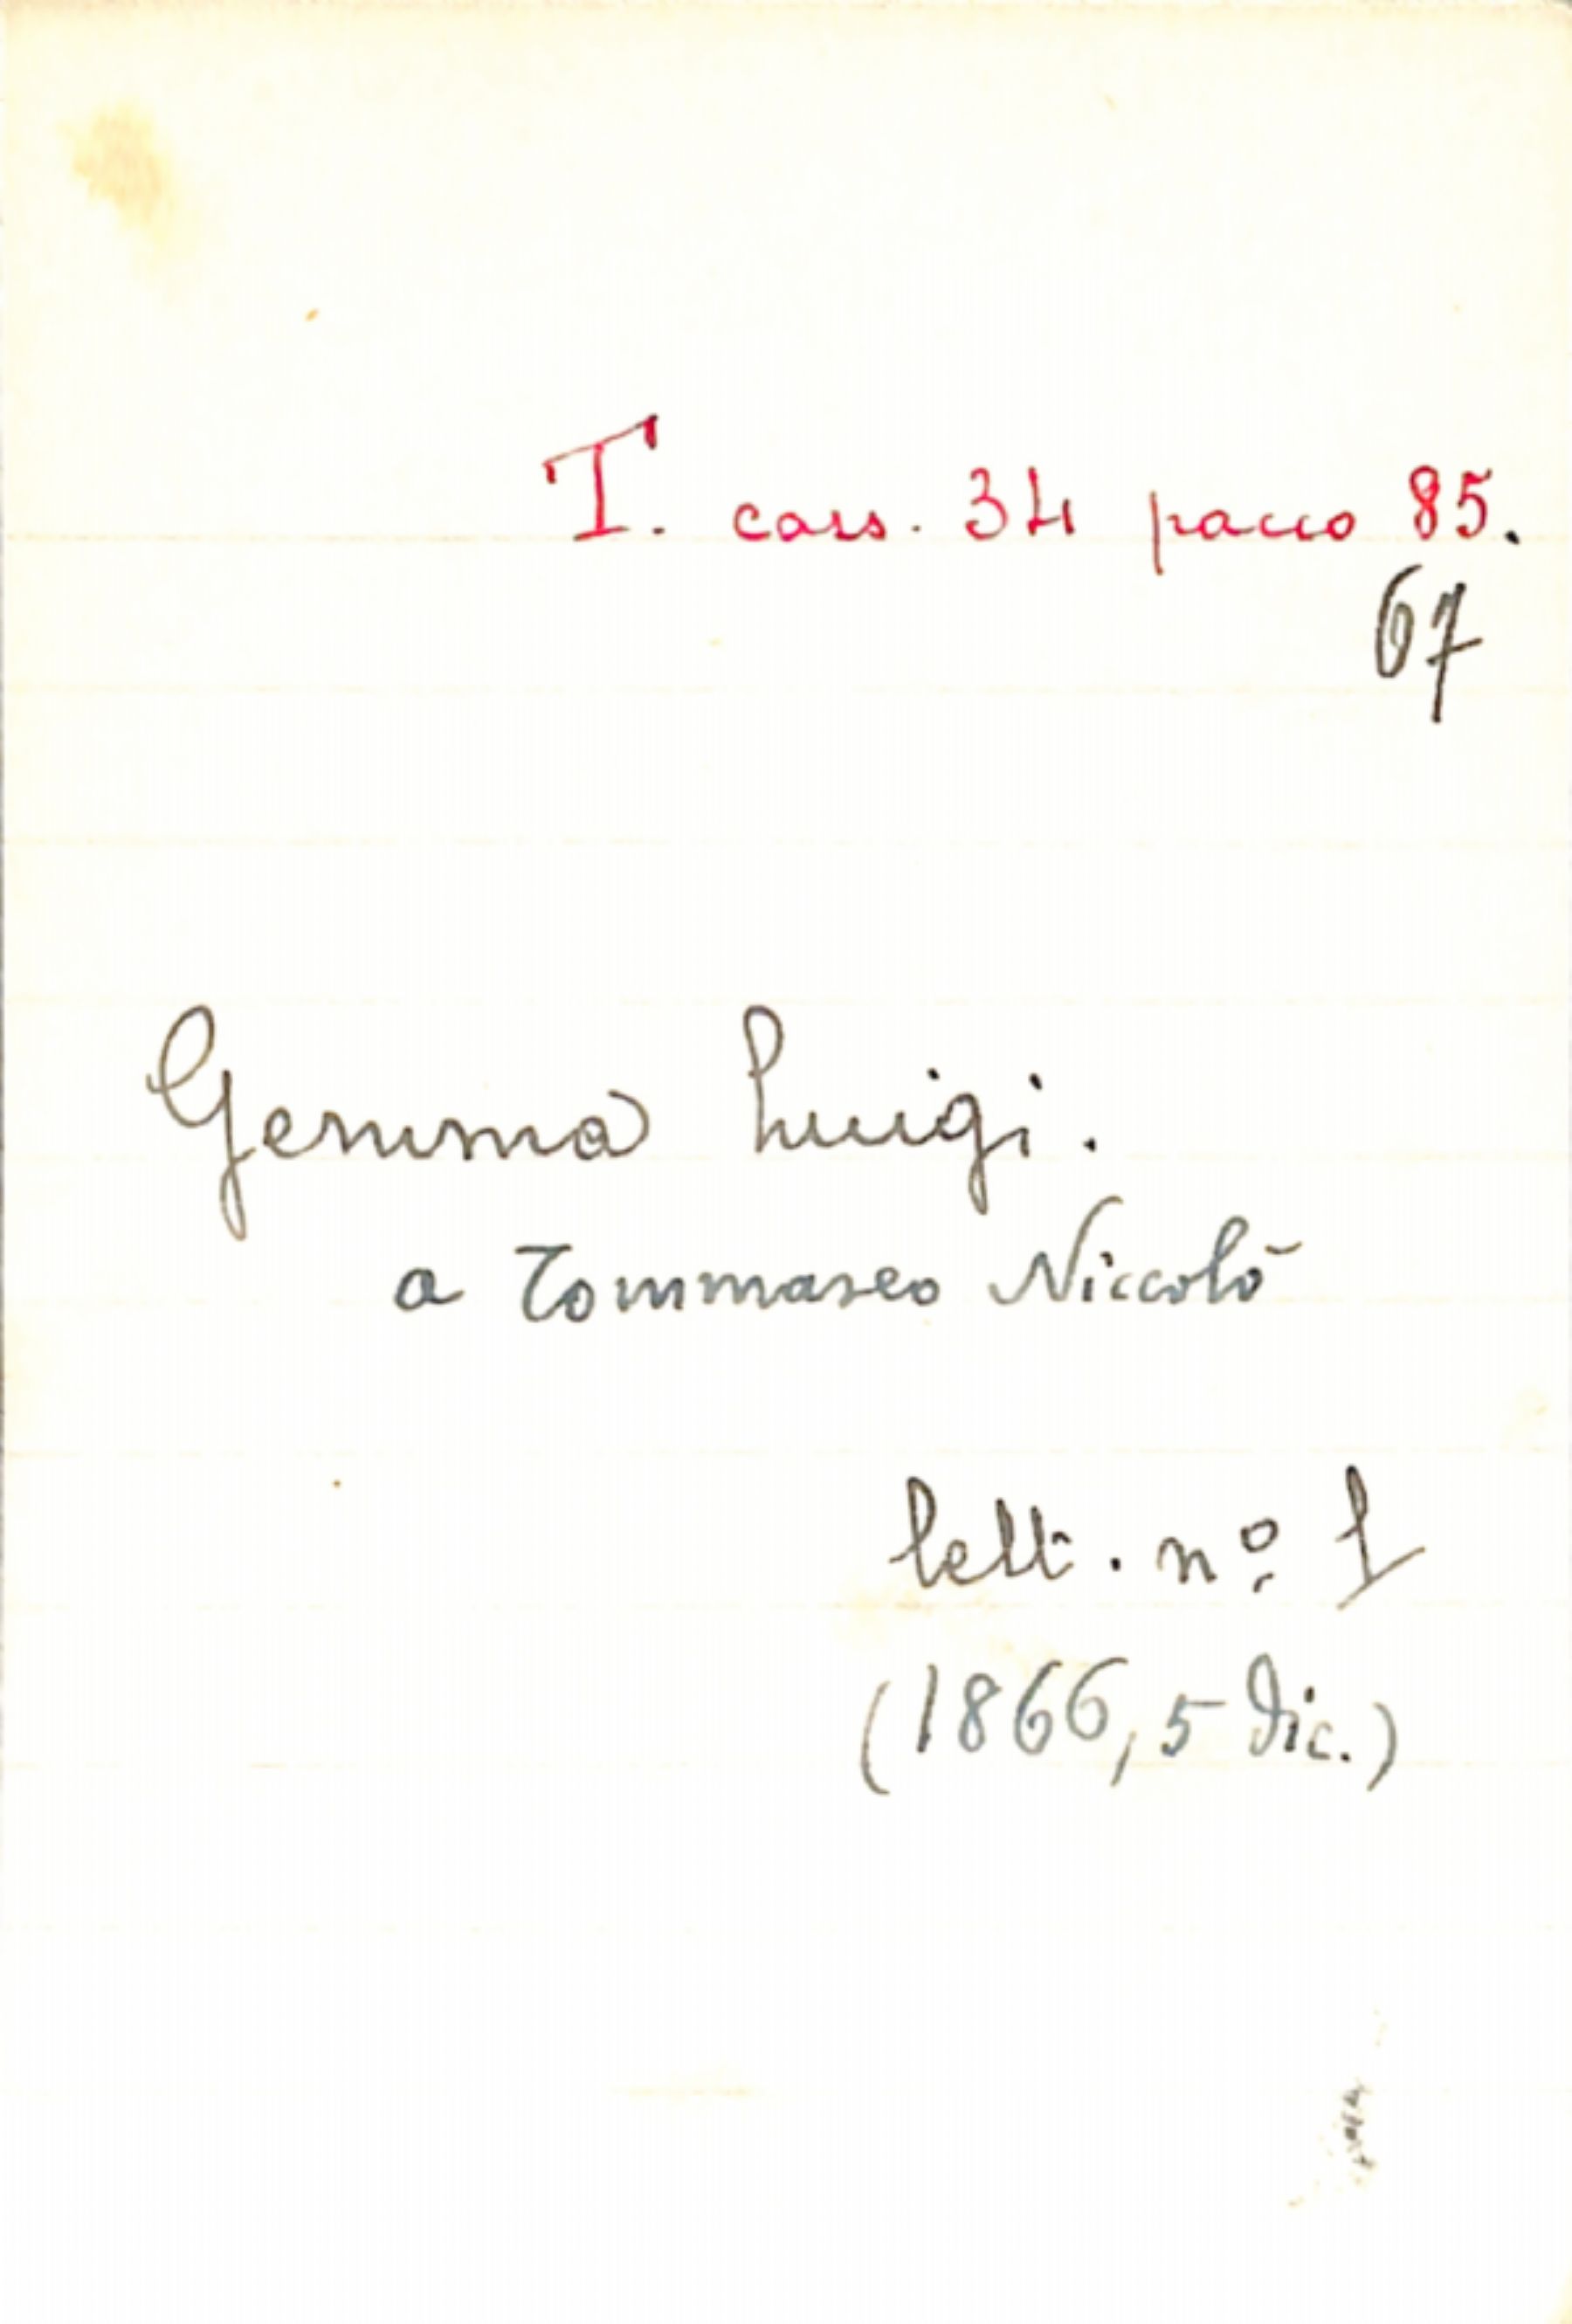 T. cass. 34 pacco 85.
67
Gemma Luigi.
a Tommaseo Niccolò
lett. nº 1
(1866, 5 Dic.)